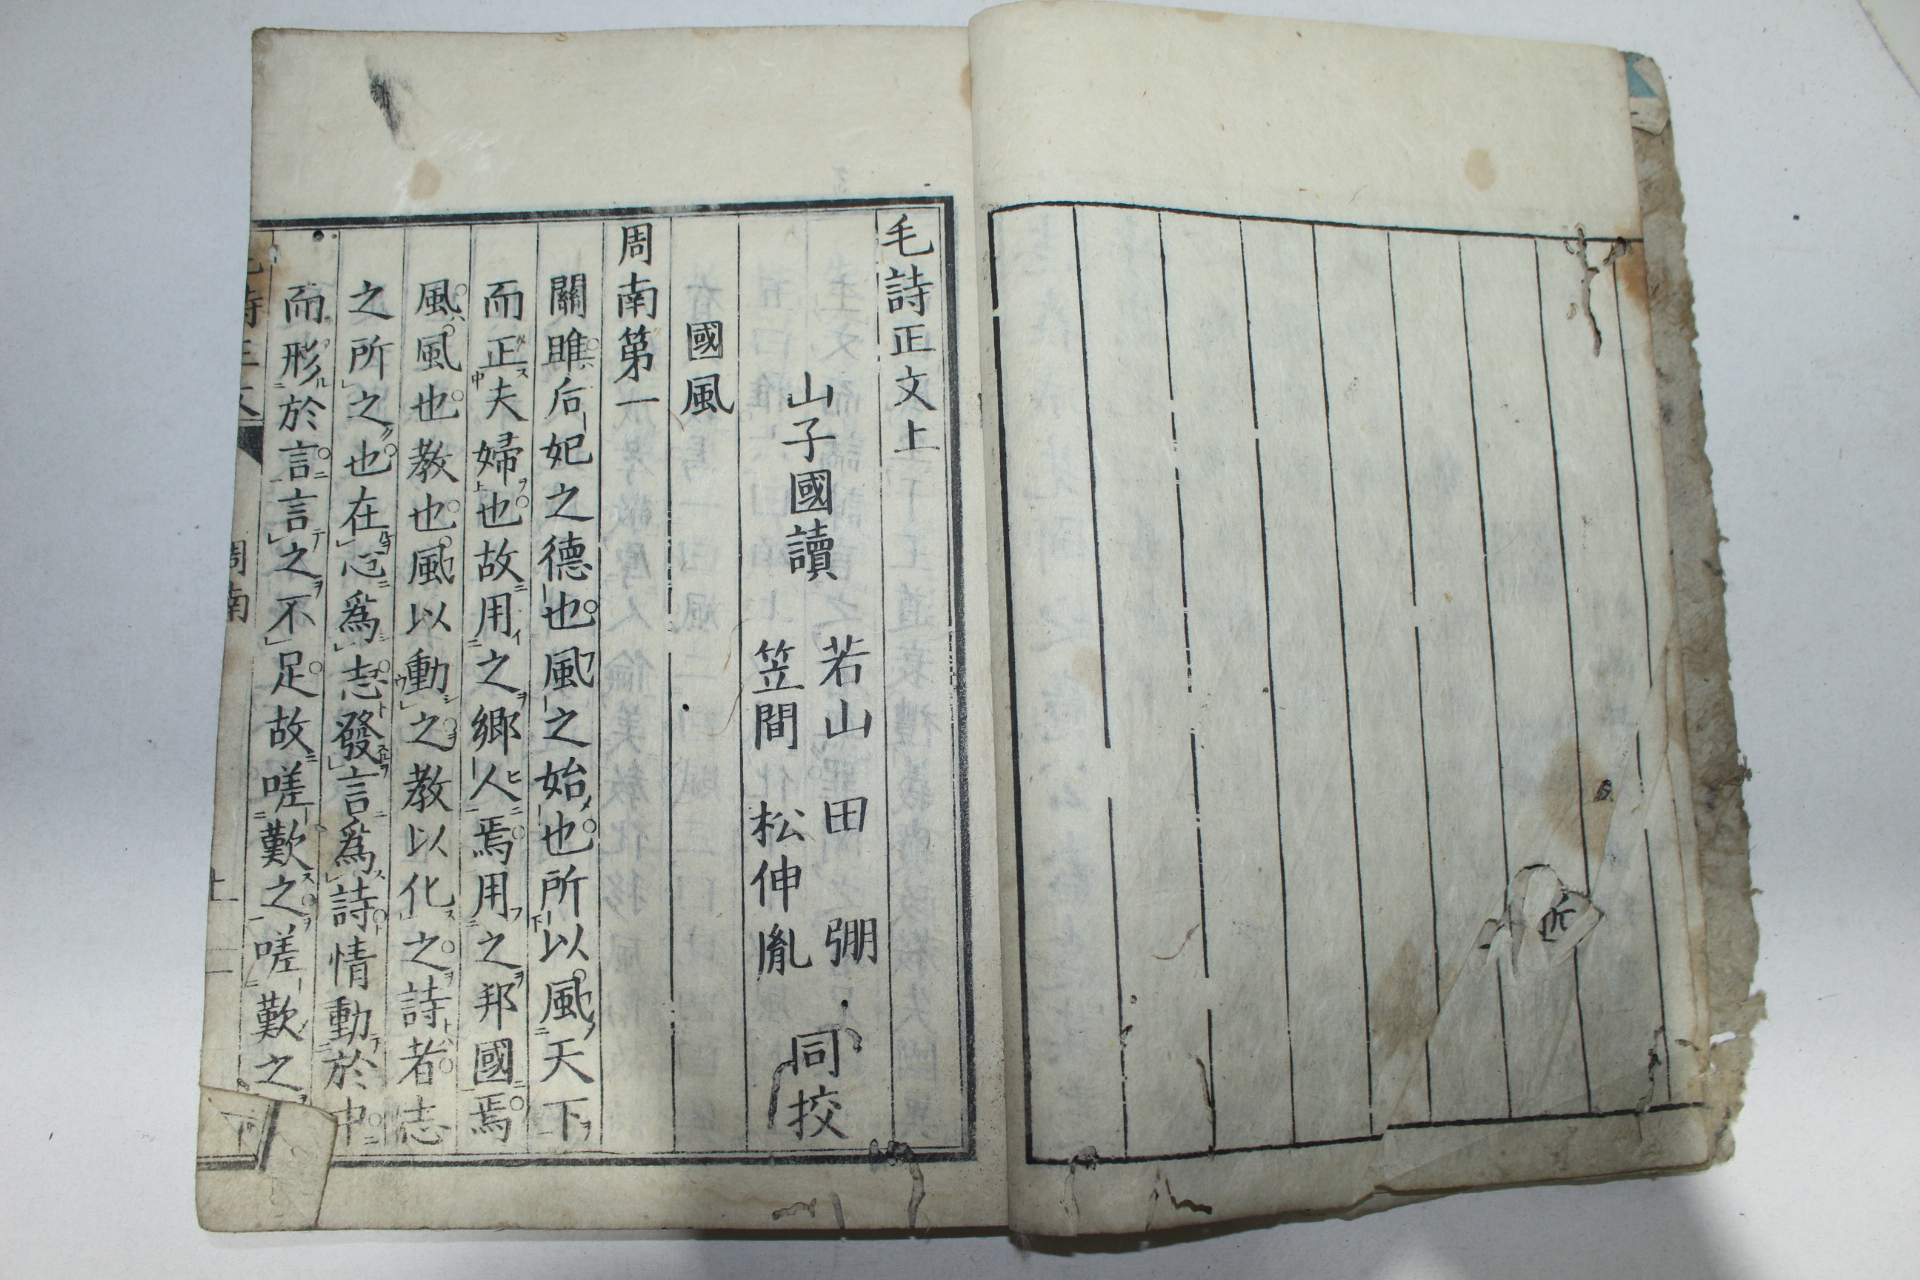 毛詩正文上
山子國讀
若山田 弸
笠間 松伸胤
同挍
國風
周南第一
關雎后妃之德也風之始也所以風天下
而正夫婦也故用之鄉人焉用之邦國焉
風風也教也風以動之教以化之詩者志
之所之也在心爲志發言爲詩情動於中
而形於言言之不足故嗟歎之嗟歎之
周南